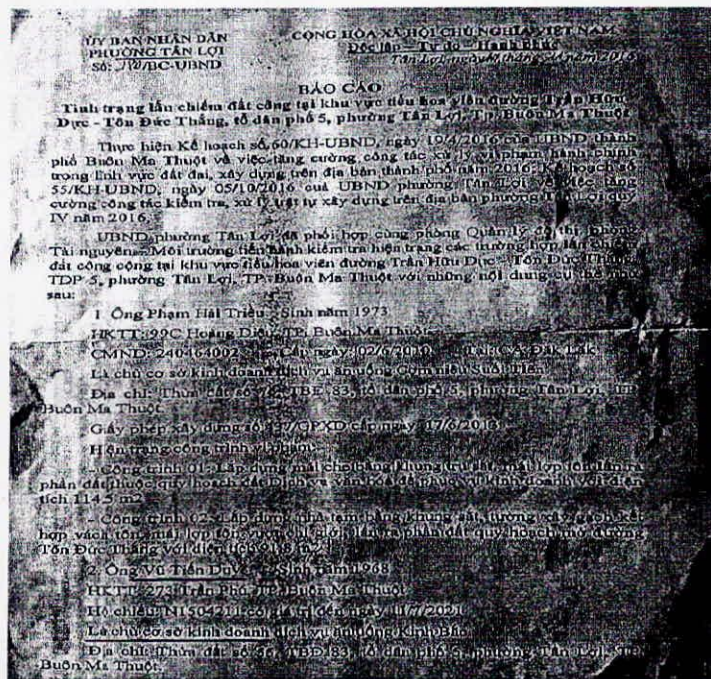 ỦY BAN NHÂN DÂN
PHƯỜNG TÂN LỢI
Số: /BC-UBND
CỘNG HÒA XÃ HỘI CHỦ NGHĨA VIỆT NAM
Độc lập – Tự do – Hạnh Phúc
Tân Lợi, ngày tháng năm 2016
BÁO CÁO
Tình trạng lấn chiếm đất công tại khu vực tiểu hoa viên đường Trần Hữu
Dực - Tôn Đức Thắng, tổ dân phố 5, phường Tân Lợi, Tp. Buôn Ma Thuột
Thực hiện Kế hoạch số 60/KH-UBND, ngày 19/4/2016 của UBND thành
phố Buôn Ma Thuột về việc tăng cường công tác xử lý vi phạm hành chính
trong lĩnh vực đất đai, xây dựng trên địa bàn thành phố năm 2016; Kế hoạch số
55/KH-UBND, ngày 05/10/2016 của UBND phường Tân Lợi về việc tăng
cường công tác kiểm tra, xử lý trật tự xây dựng trên địa bàn phường Tân Lợi quý
IV năm 2016,
UBND phường Tân Lợi đã phối hợp cùng phòng Quản lý đô thị, phòng
Tài nguyên - Môi trường tiến hành kiểm tra hiện trạng các trường hợp lấn chiếm
đất công cộng tại khu vực tiểu hoa viên đường Trần Hữu Dực - Tôn Đức Thắng
TDP 5, phường Tân Lợi, TP. Buôn Ma Thuột với những nội dung cụ thể như
sau:
1. Ông Phạm Hải Triều Sinh năm 1973
HKTT: 99C Hoàng Diệu, TP. Buôn Ma Thuột
CMND: 240464002 Cấp ngày: 02/6/2010 Tại: CA Đăk Lăk
Là chủ cơ sở kinh doanh dịch vụ ăn uống Cơm niêu Suối Tiên
Địa chỉ: Thửa đất số 76, TBĐ 83, tổ dân phố 5, phường Tân Lợi, TP.
Buôn Ma Thuột
Giấy phép xây dựng số 137/GPXD cấp ngày 17/6/2013
Hiện trạng công trình vi phạm:
- Công trình 01: Lắp dựng mái che bằng khung trụ sắt, mái lợp tôn lấn ra
phần đất thuộc quy hoạch đất Dịch vụ văn hóa để phục vụ kinh doanh với diện
tích 114,5 m2
- Công trình 02: Lắp dựng nhà tạm bằng khung sắt, tường xây gạch kết
hợp vách tôn, mái lợp tôn vượt chỉ giới lấn ra phần đất quy hoạch mở đường
Tôn Đức Thắng với diện tích m2
2. Ông Vũ Tiến Dự Sinh năm 1968
HKTT: 273 Trần Phú, TP. Buôn Ma Thuột
Hộ chiếu: N1504211 có giá trị đến ngày 11/7/2021
Là chủ cơ sở kinh doanh dịch vụ ăn uống Kinh Bắc
Địa chỉ: Thửa đất số 86, TBĐ 83, tổ dân phố 5, phường Tân Lợi, TP.
Buôn Ma Thuột